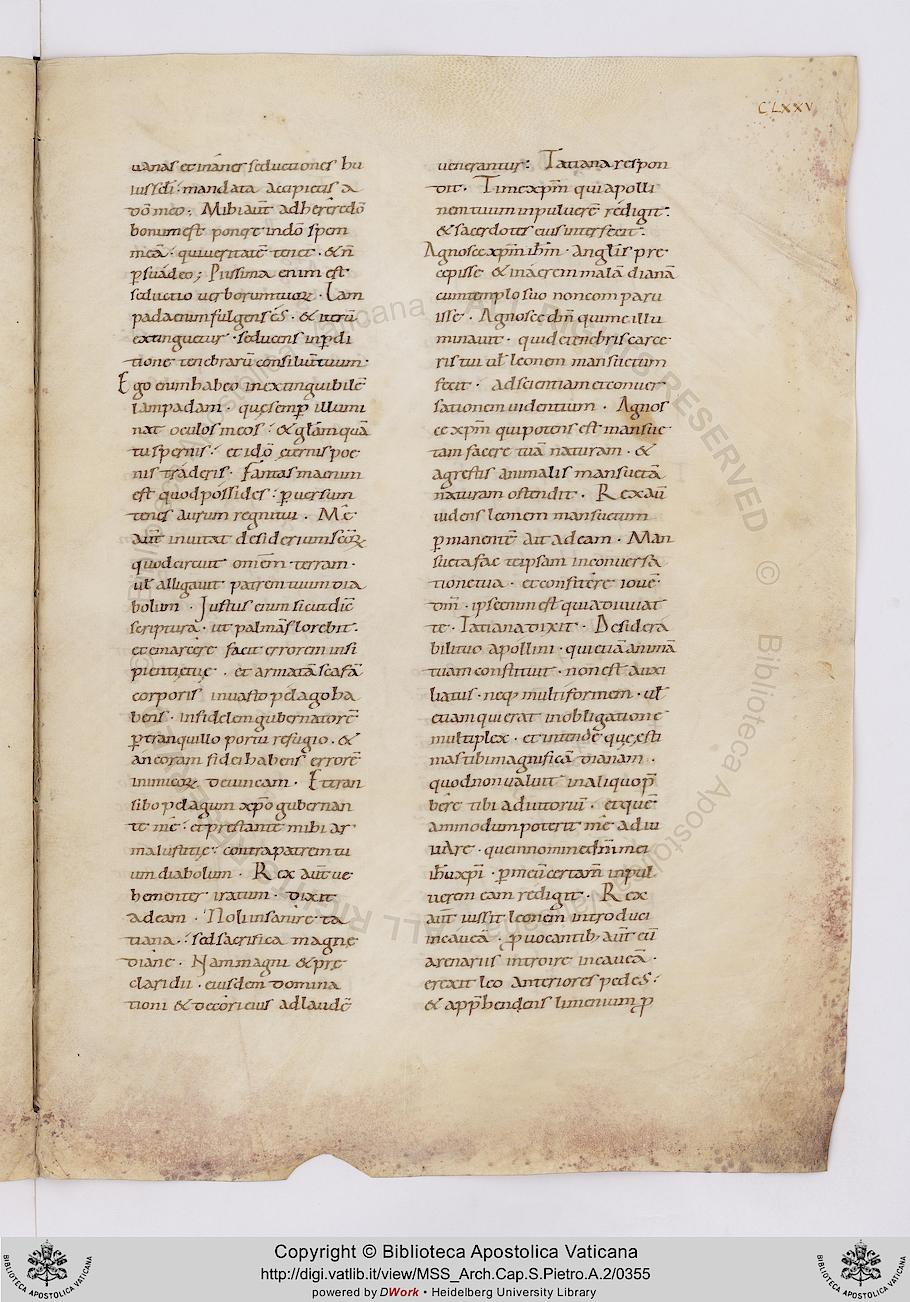 CLXXV
uanas et inanes seductiones hu
iussdi · mandata accipietis a
do̅ meo ; Mihi aut̅ adherere do̅
bonum est ponere in do̅ spem
mea̅ · qui ueritate̅ tenet · & n̅
p̲suadeo ; Piissima enim est
seductio uerborum tuoꝝ · Lam
pada enim fulgens es · & iteru̅
extinguetur · seducens in p̲di
tione tenebraru̅ consiliu̅ tuum ·
Ego enim habeo inextinguibile̅
lampadam · que semp̲ illumi
nat oculos meos : & gl̅am qua̅
tu spernis : et ido̅ eternis poe
nis traderis · Fantasma enim
est quod possides : p̲uersum
tenes aurum regni tui · Me
aut̅ inuitat desiderium sc̅oꝝ
quod circuit omne̅ terram ·
ul̅ alligauit patrem tuum dia
bolum · Justus enim sicut dic̅
scriptura · ut palma florebit ·
et emarcere facit errorem insi
pientie tue · et armata̅ scafa̅
corporis in uasto pelago ha
bens · infidelem gubernatore̅
p̲tranquillo portu refugio · &
ancoram fidei habens errore̅
inimicoꝝ deuincam · Et tran
sibo pelagum xp̅o gubernan
te me · et prestante mihi ar
ma iustitie : contra patrem tu
um diabolum · Rex aut̅ ue
hementer iratum · dixit
ad eam · Noli insanire ta
tiana : sed sacrifica magne
diane · Nam magni & pre
clari dii · eiusdem domina
tioni & decori eius ad laude̅
uenerantur : Tatiana respon
dit · Time xp̅m qui apolli
nem tuum in puluere̅ redigit :
& sacerdotes eius interfecit :
Agnosce xp̅m ih̅m · anglis pre
cepisse & in aerem mala̅ diana̅
cum templo suo non comparu
isse · Agnosce dn̅m qui me illu
minauit · quid e tenebris carce
ris tui ul̅ leonem mansuetum
fecit · ad scientiam et conuer
sationem uidentium · Agnos
ce xp̅m qui potens est mansue
tam facere tua̅ naturam · &
agrestis animalis mansueta̅
naturam ostendit · Rex au̅
uidens leonem mansuetum
p̲manente̅ ait ad eam · Man
sueta fac teipsam in conuersa
tione tua · et confitere ioue̅
dm̅ · ipse enim est qui adiuuat
te · Tatiana dixit · Desidera
bili tuo apollini · qui etia̅ anima̅
tuam constituit · non est auxi
liatus · neq; multiformem · ul̅
etiam qui erat in obligatione
multiplex · et intende que esti
mas tibi magnifica̅ dianam ·
quod non ualuit in aliquo p̲
bere tibi adiutoriu̅ · et que̅
ammodum poterit me adiu
uAre · que in nomine dn̅i mei
ih̅u xp̅i · p̲ meu̅ certam̅ in pul
uerem eam redigit · Rex
aut̅ iussit leonem introduci
in cauea̅ · p̲uocantib; aut̅ eu̅
arenarius introire in cauea̅ ·
erexit leo anteriores pedes :
& app̲hendens limenium p̲
Copyright © Biblioteca Apostolica Vaticana
http://digi.vatlib.it/view/MSS_Arch.Cap.S.Pietro.A.2/0355
powered by DWork • Heidelberg University Library